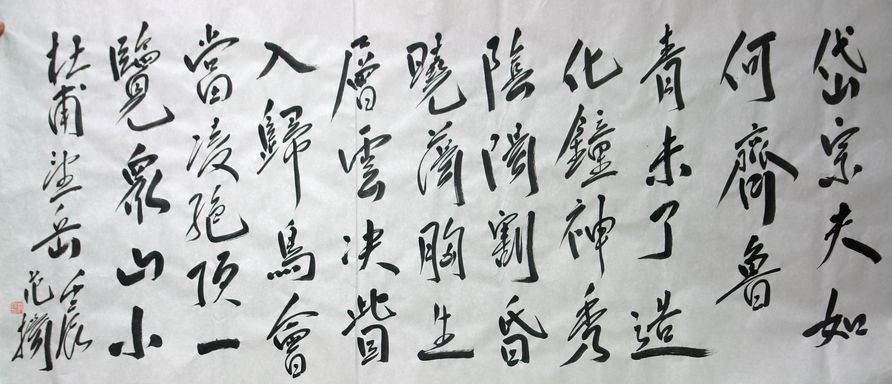 岱宗夫如
何齊魯
青未了造
化鐘神秀
陰陽割昏
曉蕩胸生
層雲决眥
入歸鳥會
當凌絕頂一
覽衆山小
杜甫望岳
壬辰
范